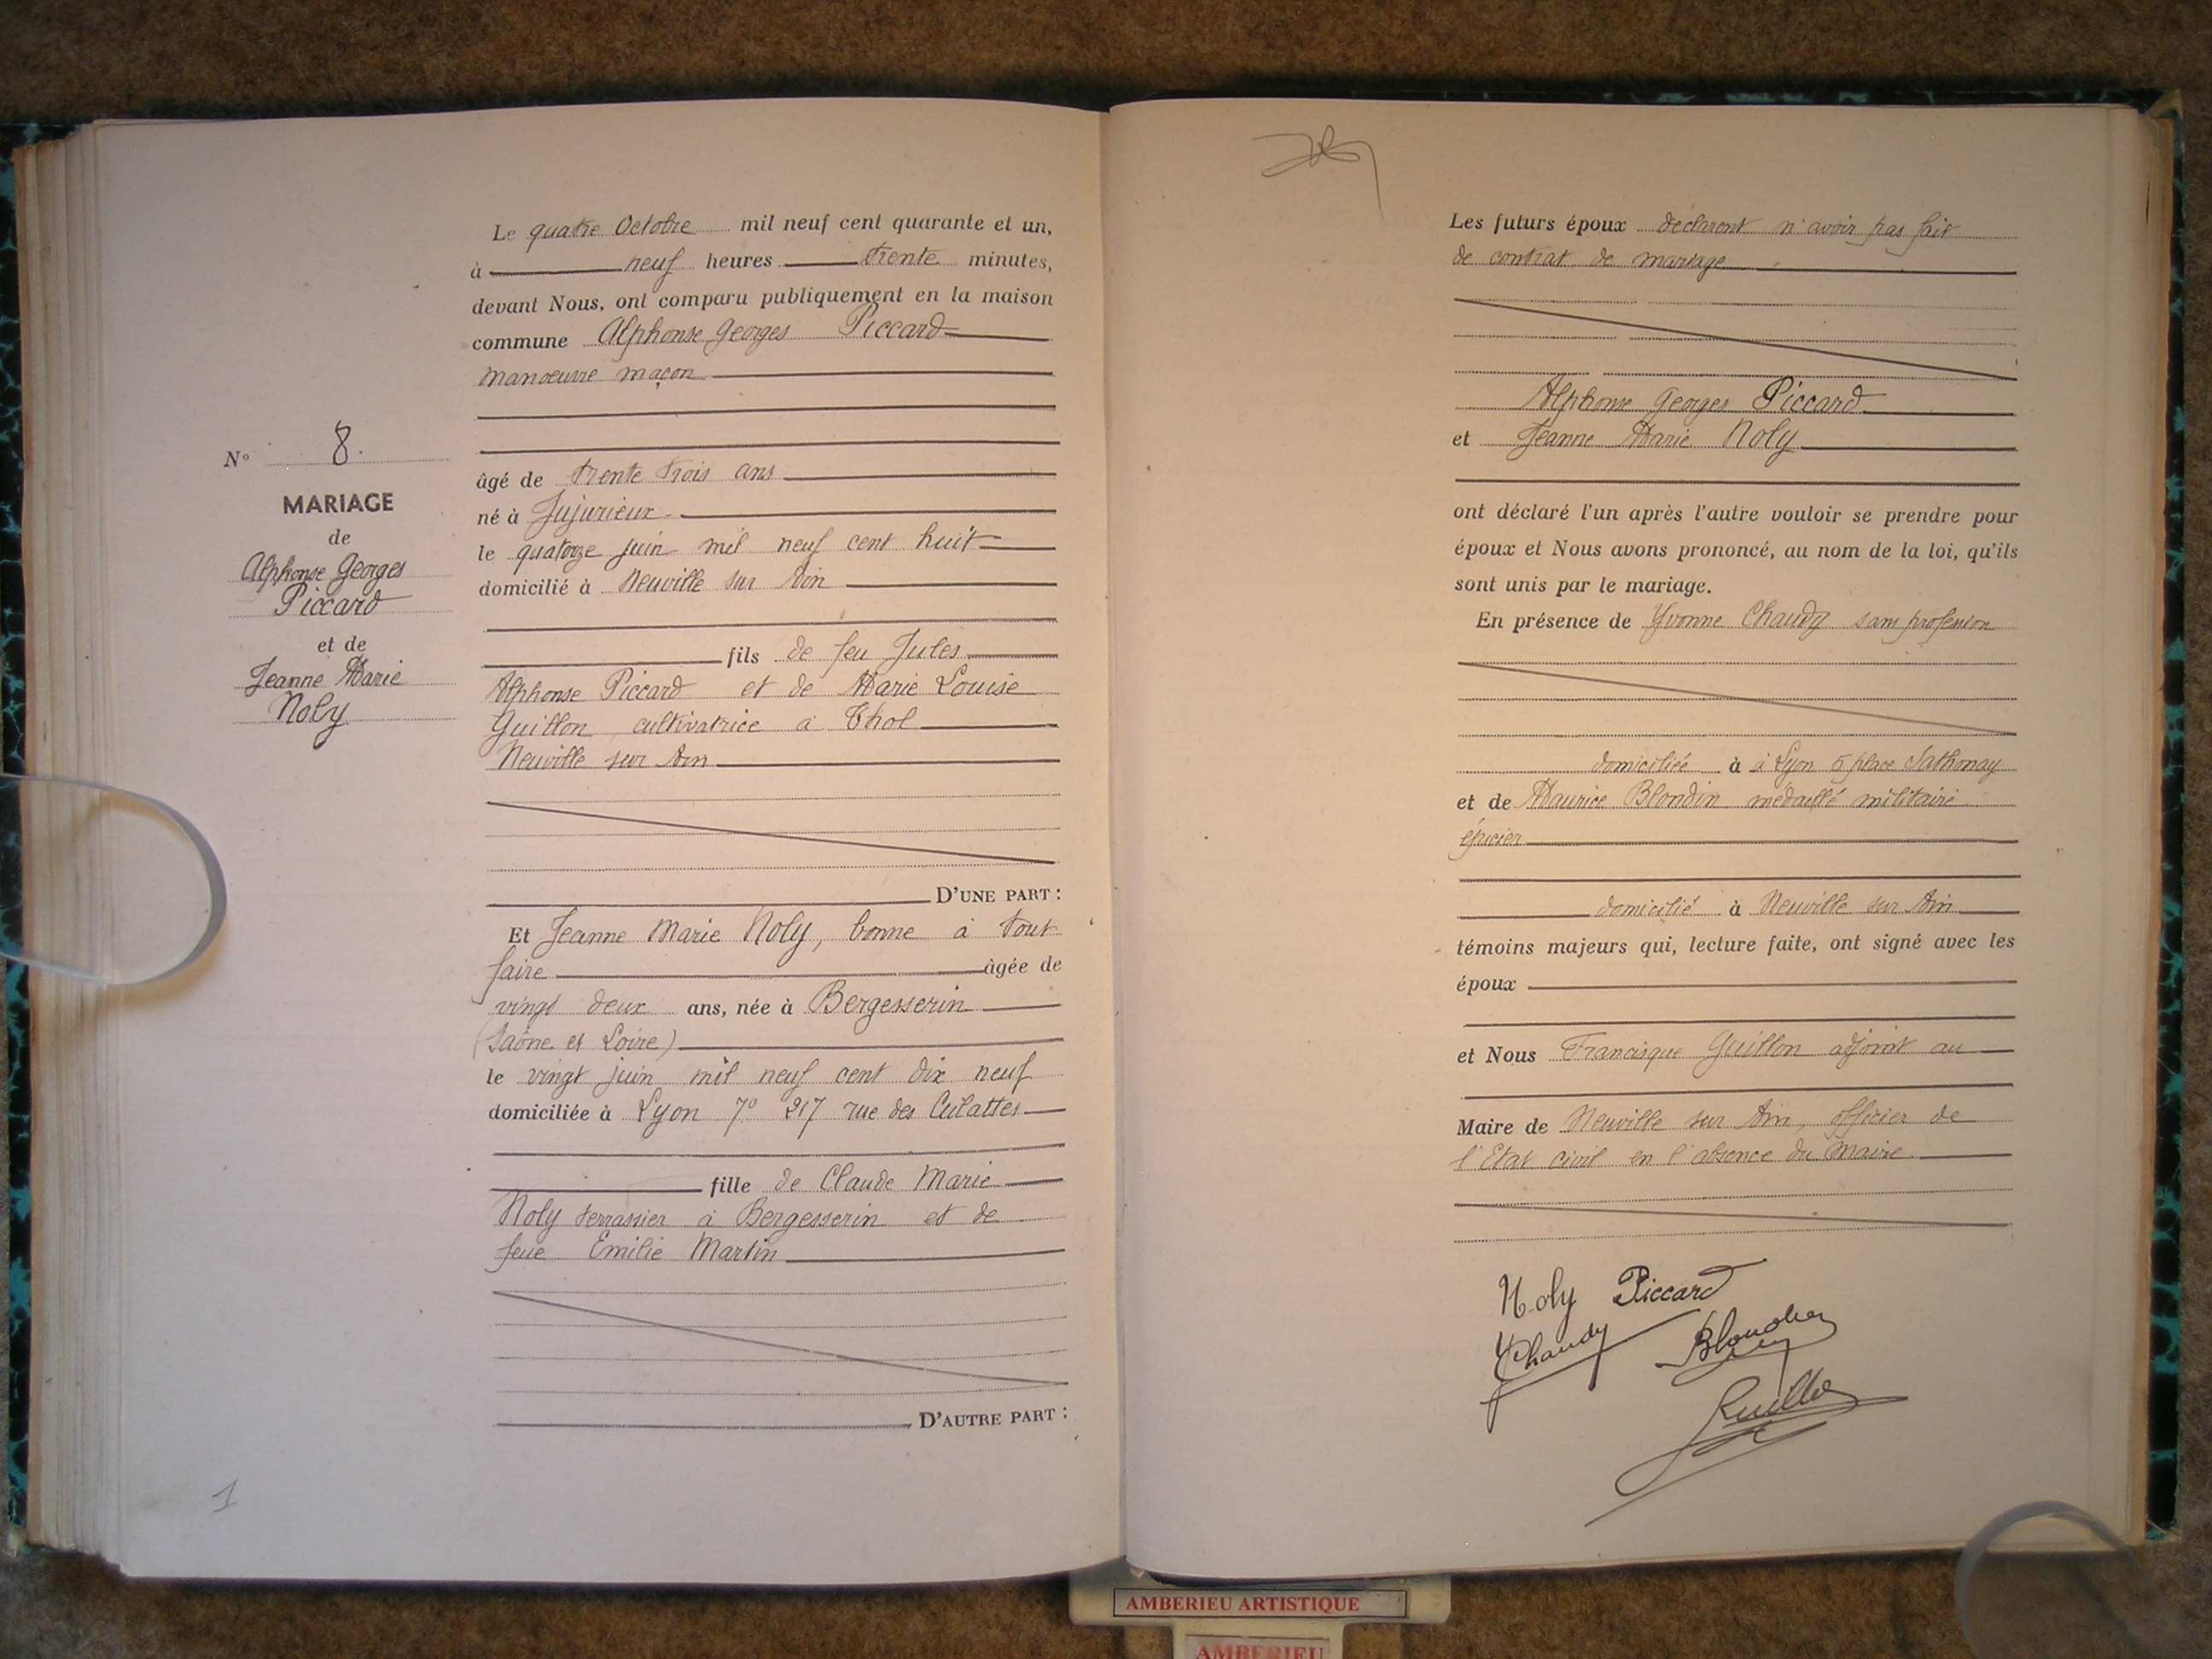 Le quatre Octobre mil neuf cent quarante et un,
à neuf heures trente minutes,
devant Nous, ont comparu publiquement en la maison
commune Alphonse Georges Piccard
manoeuvre maçon
âgé de trente trois ans
né à Jujurieux
le quatorze juin mil neuf cent huit
domicilié à Neuville sur Ain
fils de feu Jules
Alphonse Piccard et de Marie Louise
Guillon, cultivatrice à Thol
Neuville sur Ain
D'UNE PART :
Et Jeanne Marie Noly, bonne à tout
faire âgée de
vingt deux ans, née à Bergesserin
(Saône et Loire)
le vingt juin mil neuf cent dix neuf
domiciliée à Lyon 7º 217 rue des Culattes
fille de Claude Marie
Noly terrassier à Bergesserin et de
feue Emilie Martin
D'AUTRE PART :
Nº 8.
MARIAGE
de
Alphonse Georges
Piccard
et de
Jeanne Marie
Noly
1
Les futurs époux déclarent n'avoir pas fait
de contrat de mariage
Alphonse Georges Piccard
et Jeanne Marie Noly
ont déclaré l'un après l'autre vouloir se prendre pour
époux et Nous avons prononcé, au nom de la loi, qu'ils
sont unis par le mariage.
En présence de Yvonne Chaudy sans profession
domiciliée à à Lyon 5 place Sathonay
et de Maurice Blondin médaillé militaire
épicier
domicilié à Neuville sur Ain
témoins majeurs qui, lecture faite, ont signé avec les
époux
et Nous Francisque Guillon adjoint au
Maire de Neuville sur Ain, officier de
l'Etat civil en l'absence du Maire
Noly Piccard
Chaudy Blondin
Guillon
AMBERIEU ARTISTIQUE
AMBERIEU